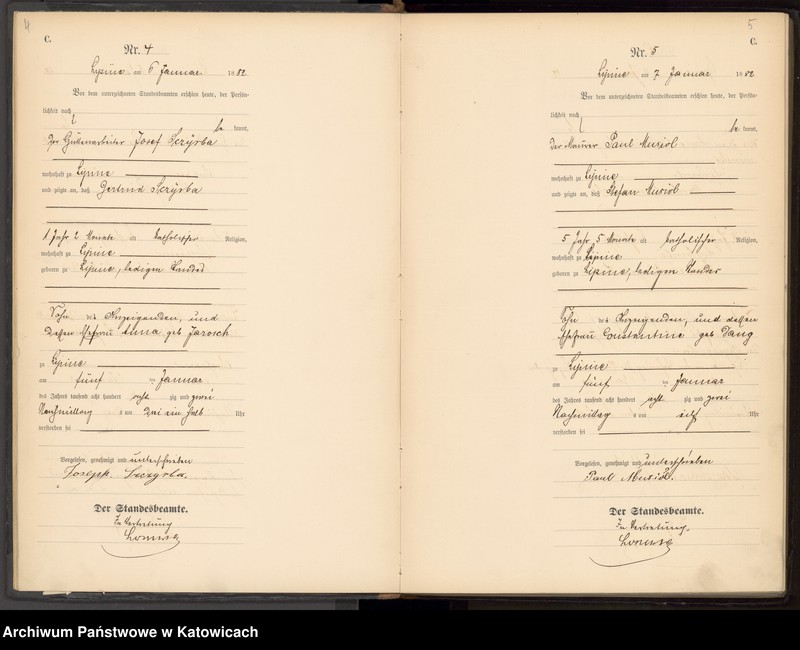 4
C.
Nr. 4
Lipine am 6 Januar 1882
Vor dem unterzeichneten Standesbeamten erschien heute, der Persön-
lichkeit nach
be kannt,
der Hüttenarbeiter Josef Sczyrba
wohnhaft zu Lipine
und zeigte an, daß Gertrud Sczyrba
1 Jahr 2 Monate alt katholischer Religion,
wohnhaft zu Lipine
geboren zu Lipine, ledigen Standes
Sohn des Anzeigenden, und
dessen Ehefrau Anna geb Jarosch
zu Lipine
am fünf ten Januar
des Jahres tausend acht hundert acht zig und zwei
Nachmittag s um drei ein halb Uhr
verstorben sei
Vorgelesen, genehmigt und unterschrieben
Joseph Sczyrba.
Der Standesbeamte.
In Vertretung
5
C.
Nr. 5
Lipine am 7 Januar 1882
Vor dem unterzeichneten Standesbeamten erschien heute, der Persön-
lichkeit nach
be kannt,
der Maurer Paul Musiol
wohnhaft zu Lipine
und zeigte an, daß Stefan Musiol
5 Jahr, 5 Monate alt katholischer Religion,
wohnhaft zu Lipine
geboren zu Lipine, ledigen Standes
Sohn des Anzeigenden, und dessen
Ehefrau Constantine geb
zu Lipine
am fünf ten Januar
des Jahres tausend acht hundert acht zig und zwei
Nachmittag s um Uhr
verstorben sei
Vorgelesen, genehmigt und unterschrieben
Paul Musiol.
Der Standesbeamte.
In Vertretung.
Archiwum Państwowe w Katowicach